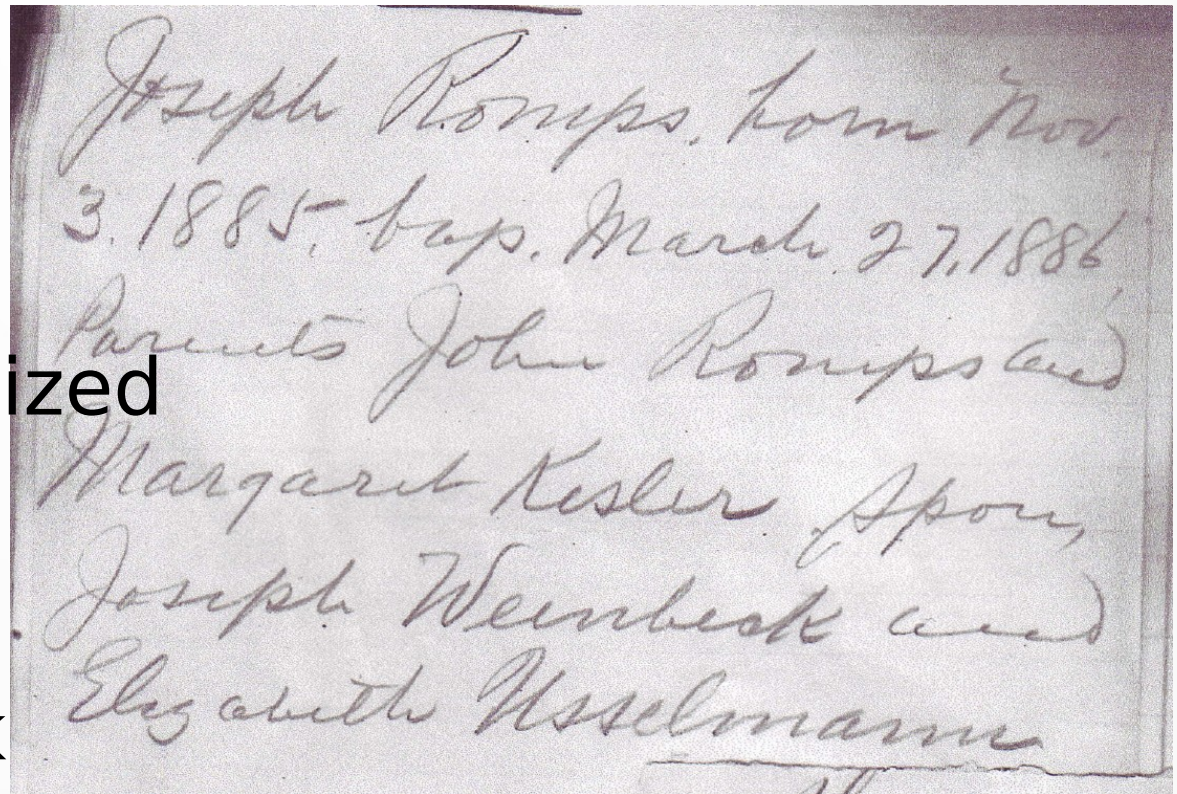 Joseph Romps. born Nov.
3. 1885, bap. March. 27, 1886,
Parents John Romps and
ized
Margaret Kesler. Spon,
Joseph Weinbeck and
Elizabeth Usselmann